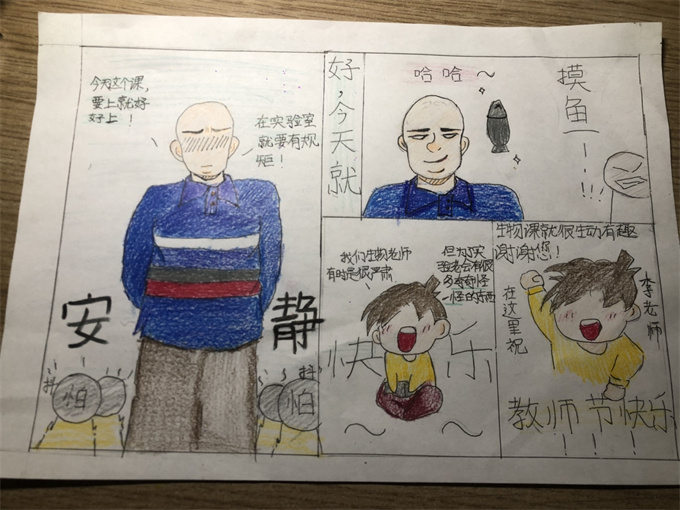 今天这个课，
要上就好
好上！
在实验室
就要有规
矩！
安静
抖
怕
抖
怕
好，今天就
哈哈～
摸鱼!!!
我们生物老师
有时是很严肃
但为了实
验老会有很
多奇奇怪
怪的东西
快乐
生物课就很生动有趣
谢谢您！
在这里祝
李老师
教师节快乐